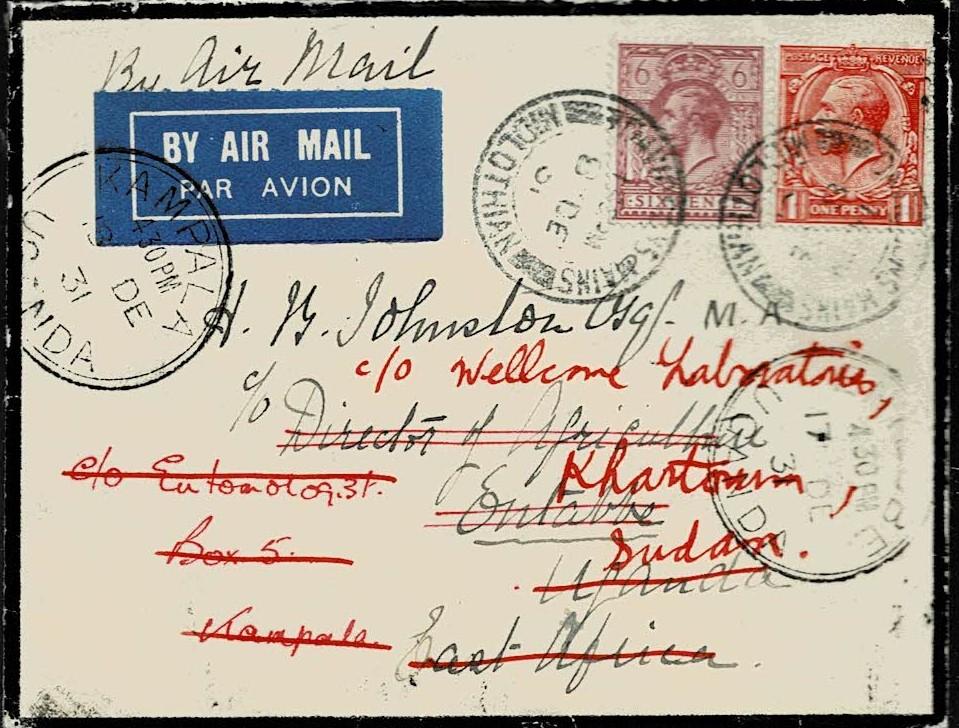 By Air Mail
BY AIR MAIL
PAR AVION
6 6
SIX PEN
POSTAGE REVENUE
1 ONE PENNY 1
MIDLOTHIAN
DE
31
MIDLOTHIAN
KAMPALA
4 30 PM
DE
31
UGANDA
H. B. Johnston Esqr. M.A.
c/o Wellcome Laboratories,
c/o Director of Agriculture
c/o Entomologist.
Khartoum,
Entebbe
Box 5.
Sudan.
Uganda
Kampala.
East Africa.
4 30 PM
17 DE
31
UGANDA